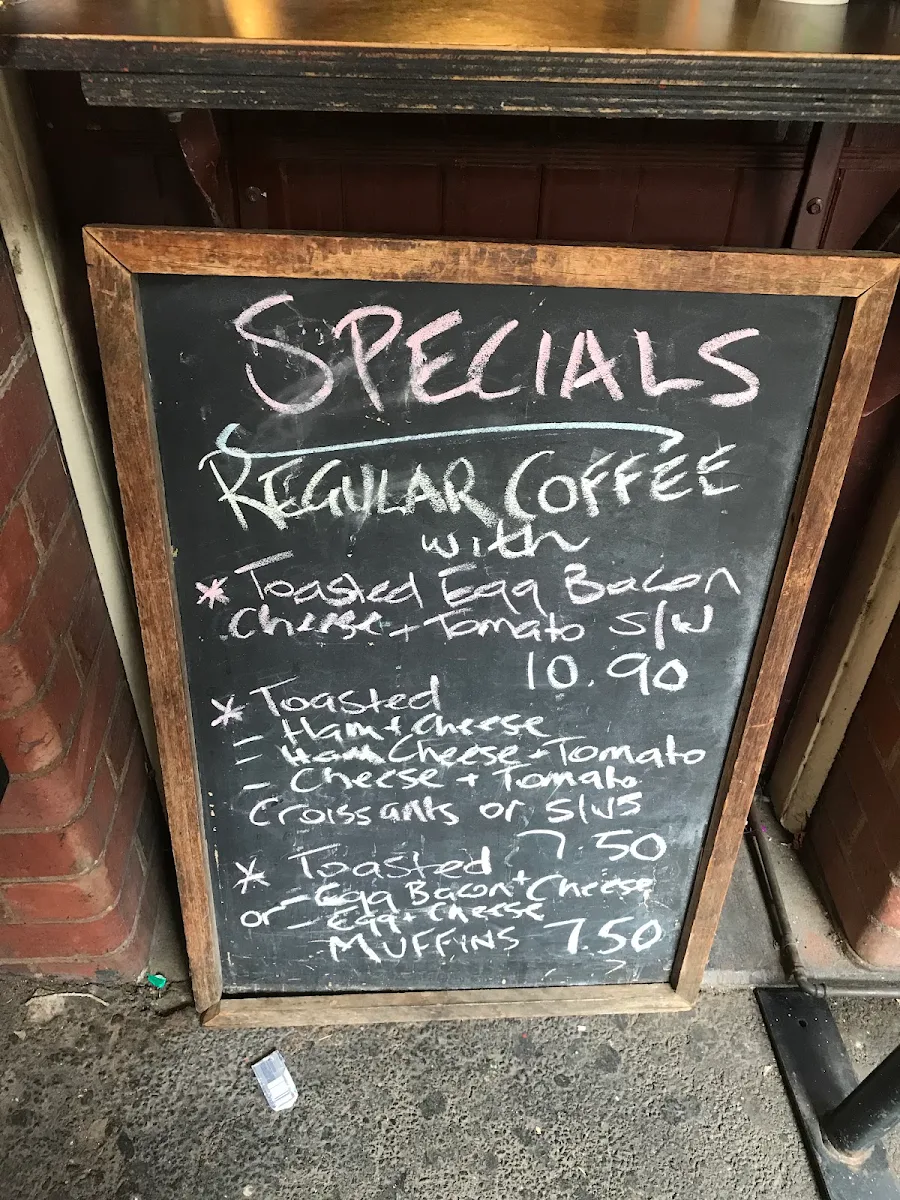 SPECIALS
REGULAR COFFEE
with
* Toasted Egg Bacon
Cheese + Tomato S/W
10.90
* Toasted
- Ham + Cheese
- Ham Cheese + Tomato
- Cheese + Tomato
Croissants or S/WS
7.50
* Toasted
- Egg Bacon + Cheese
or - Egg + Cheese
MUFFINS 7.50